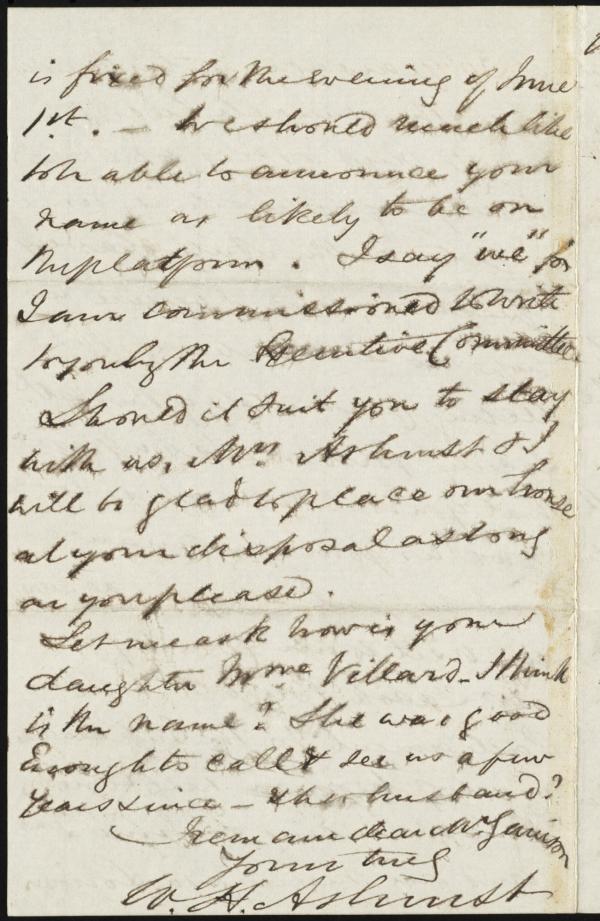 is fixed for the evening of June
1st. — We should much like
to be able to announce your
name as likely to be on
the platform. I say "we" for
I am commissioned to write
to you by the Executive Committee
Should it suit you to stay
with us, Mrs Ashurst & I
will be glad to place our house
at your disposal as long
as you please.
Let me ask how is your
daughter Mme Villard - I think
is the name? She was good
enough to call & see us a few
years since — & her husband?
I remain dear Mr Garrison
Yours truly
W. H. Ashurst